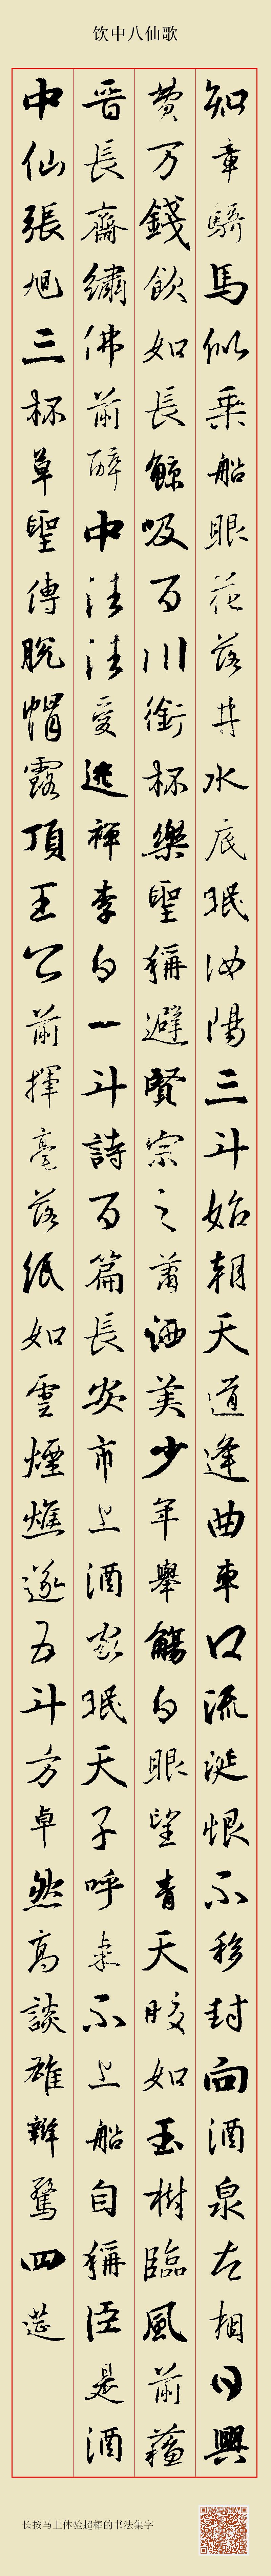 饮中八仙歌
知章騎馬似乘船眼花落井水底眠汝陽三斗始朝天道逢曲車口流涎恨不移封向酒泉左相日興
費万錢飲如長鯨吸百川銜杯樂聖稱避賢宗之蕭洒美少年舉觴白眼望青天皎如玉樹臨風前蘇
晉長齋繡佛前醉中往往愛逃禪李白一斗詩百篇長安市上酒家眠天子呼來不上船自稱臣是酒
中仙張旭三杯草聖傳脫帽露頂王公前揮毫落紙如雲煙燋遂五斗方卓然高談雄辯驚四筵
长按马上体验超棒的书法集字